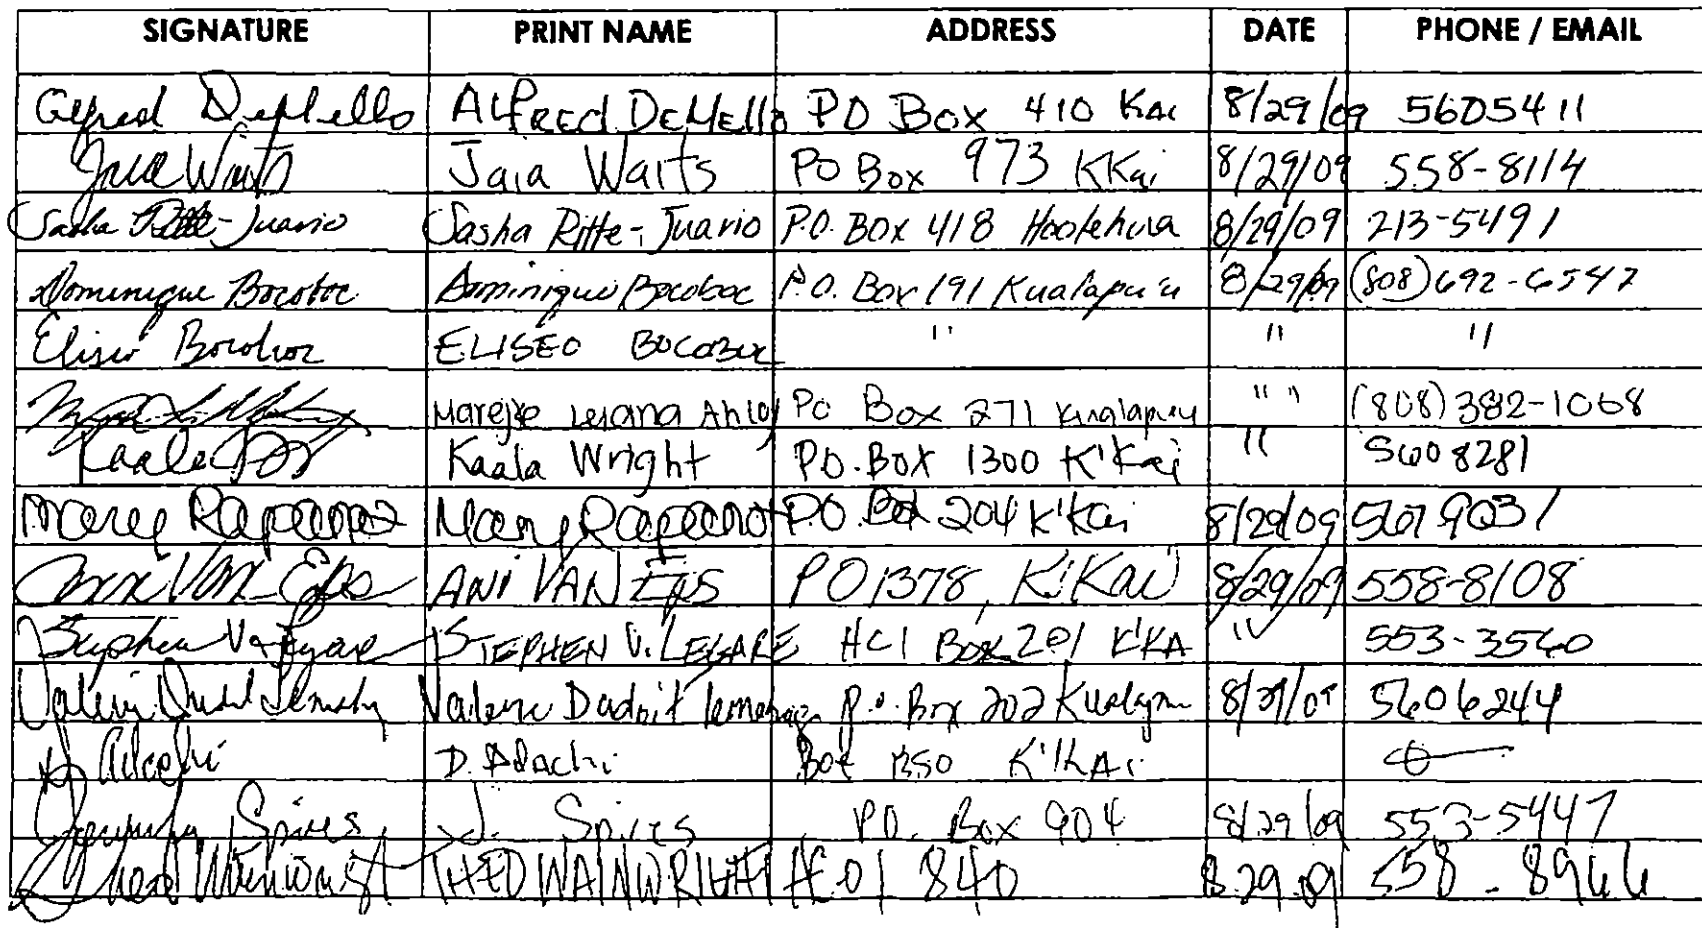 SIGNATURE PRINT NAME ADDRESS DATE PHONE / EMAIL
Alfred DeMello ALFRED DEMELLO PO Box 410 Kai 8/29/09 5605411
Jaia Waits Jaia Waits PO Box 973 KKai 8/29/09 558-8114
Sasha Ritte-Juario Sasha Ritte-Juario P.O. Box 418 Hoolehua 8/29/09 213-5491
Dominique Bocoboc Dominique Bocoboc P.O. Box 191 Kualapu'u 8/29/09 (808) 692-6547
Eliseo Bocoboc ELISEO BOCOBOC " " "
PO Box 271 " " (808) 382-1068
Kaala Kaala Wright P.O. Box 1300 K'Kai " 5608281
P.O. Box 204 K'Kai 8/29/09 567 9031
Ani Van Eps ANI VAN EPS PO 1378, K'KAI 8/29/09 558-8108
Stephen V. Legare STEPHEN V. LEGARE HC1 Box 201 K'KA " 553-3560
Dudoit P.O. Box 202 5606244
D. Adachi D. Adachi Box 1350 K'KAI
Spires J. Spires P.O. Box 904 8/29/09 553-5447
Wainwright WAINWRIGHT H.C.01 840 8.29.09 558-8966